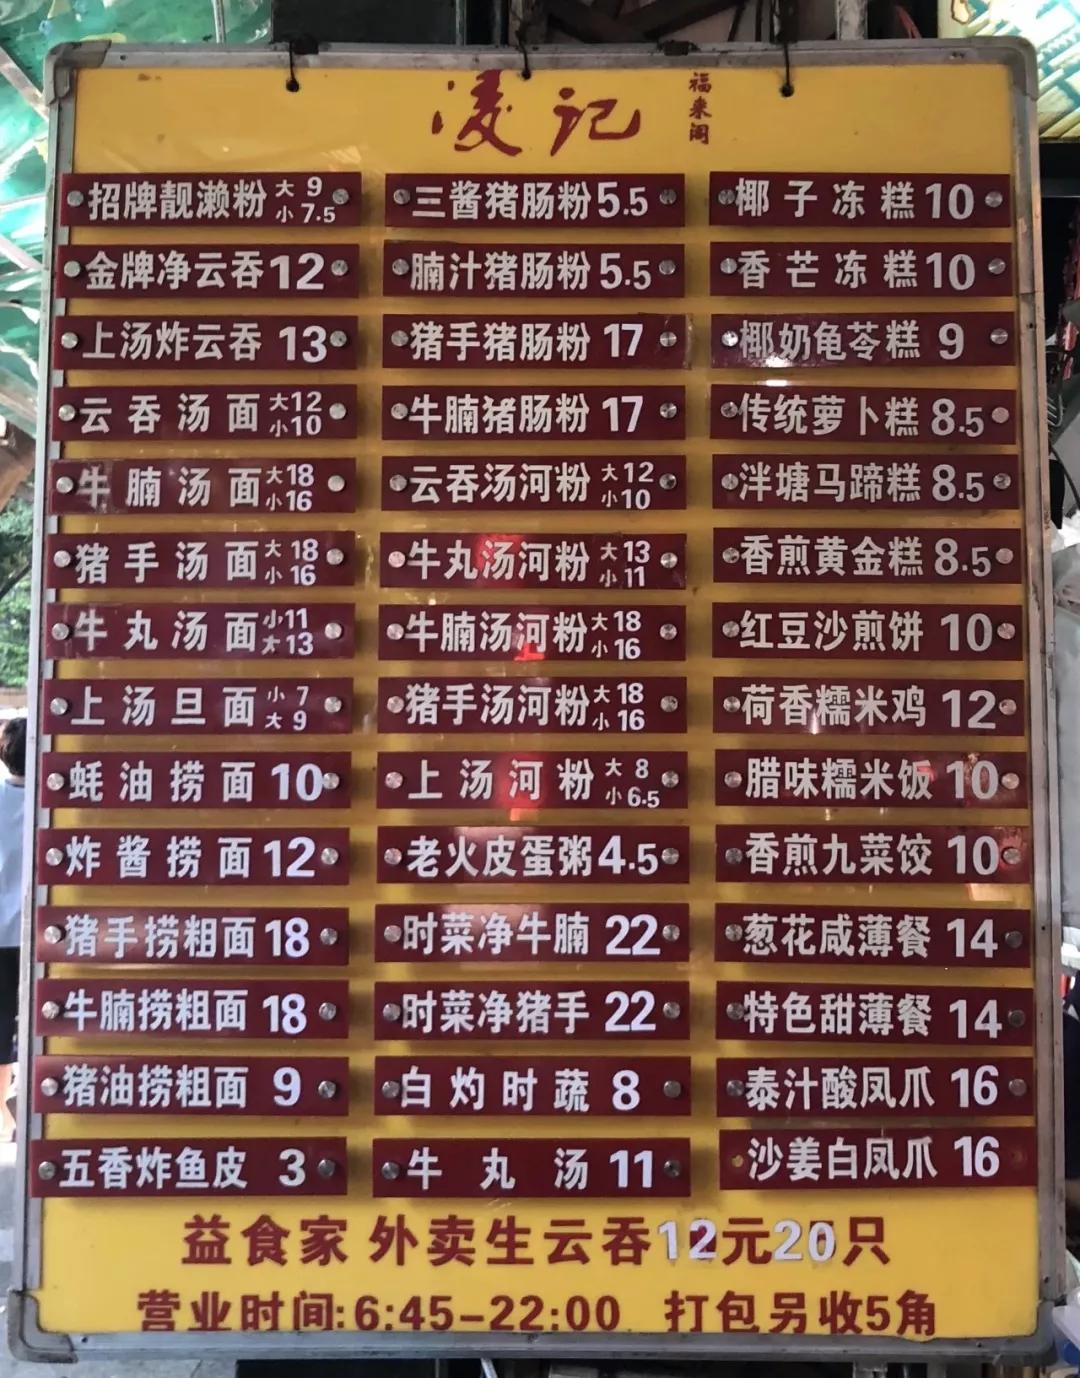 凌记 福来阁
招牌靓濑粉 大 9 小 7.5
金牌净云吞 12
上汤炸云吞 13
云吞汤面 大12 小10
牛腩汤面 大18 小16
猪手汤面 大 18 小 16
牛丸汤面 小11 大13
上汤旦面 小 7 大 9
蚝油捞面 10
炸酱捞面 12
猪手捞粗面 18
牛腩捞粗面 18
猪油捞粗面 9
五香炸鱼皮 3
三酱猪肠粉 5.5
腩汁猪肠粉 5.5
猪手猪肠粉 17
牛腩猪肠粉 17
云吞汤河粉 大12 小10
牛丸汤河粉 大13 小11
牛腩汤河粉 大18 小16
猪手汤河粉 大18 小16
上汤河粉 大 8 小 6.5
老火皮蛋粥 4.5
时菜净牛腩 22
时菜净猪手 22
白灼时蔬 8
牛丸汤 11
椰子冻糕 10
香芒冻糕 10
椰奶龟苓糕 9
传统萝卜糕 8.5
泮塘马蹄糕 8.5
香煎黄金糕 8.5
红豆沙煎饼 10
荷香糯米鸡 12
腊味糯米饭 10
香煎九菜饺 10
葱花咸薄餐 14
特色甜薄餐 14
泰汁酸凤爪 16
沙姜白凤爪 16
益食家 外卖生云吞12元20只
营业时间:6:45-22:00 打包另收5角